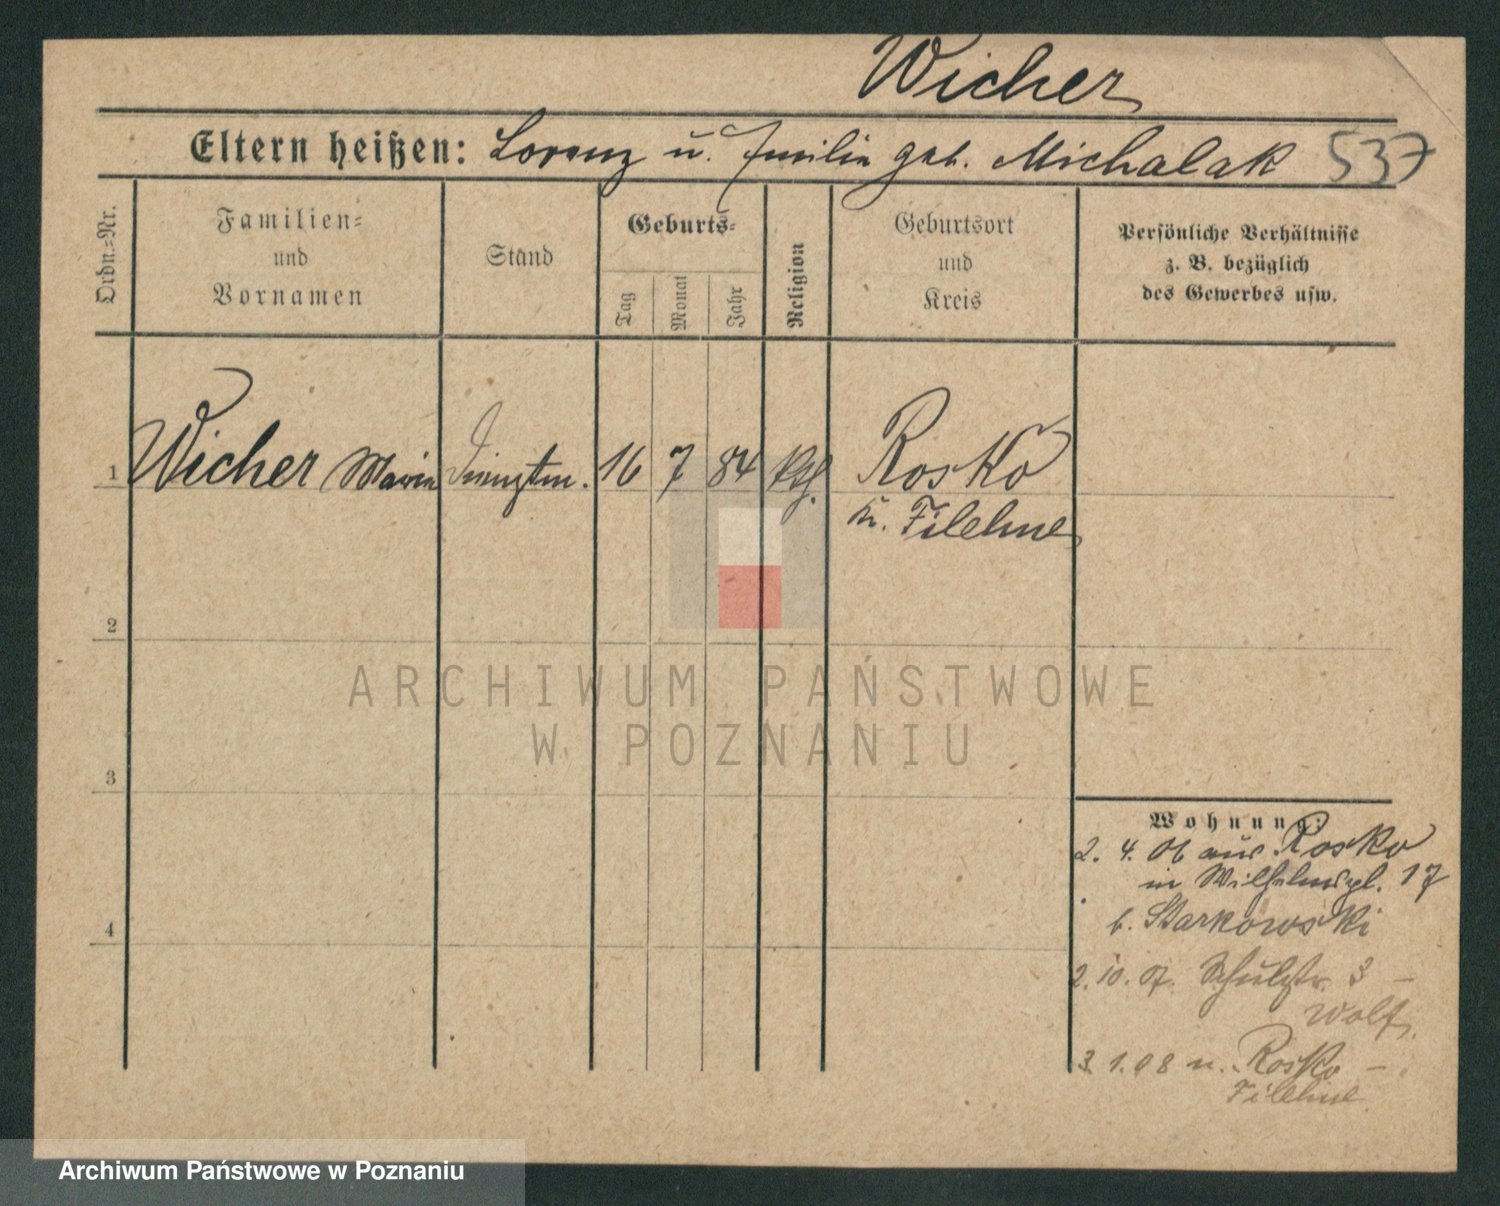 Wicher
Eltern heißen: Lorenz u. Emilia geb. Michalak 537
Ordn.=Nr.
Familien=
und
Vornamen
Stand
Geburts=
Tag
Monat
Jahr
Religion
Geburtsort
und
Kreis
Persönliche Verhältnisse
z. B. bezüglich
des Gewerbes usw.
1 Wicher Maria 16 7 84 kth. Rosko
Kr. Filehne
2
3
4
Wohnung:
2. 4. 06 aus Rosko
in Wilhelmspl. 17
b. Starkowski
2. 10. 07. Schulstr. 3 –
Wolf.
3. 1. 08 n. Rosko –
Filehne
ARCHIWUM PAŃSTWOWE
W POZNANIU
Archiwum Państwowe w Poznaniu